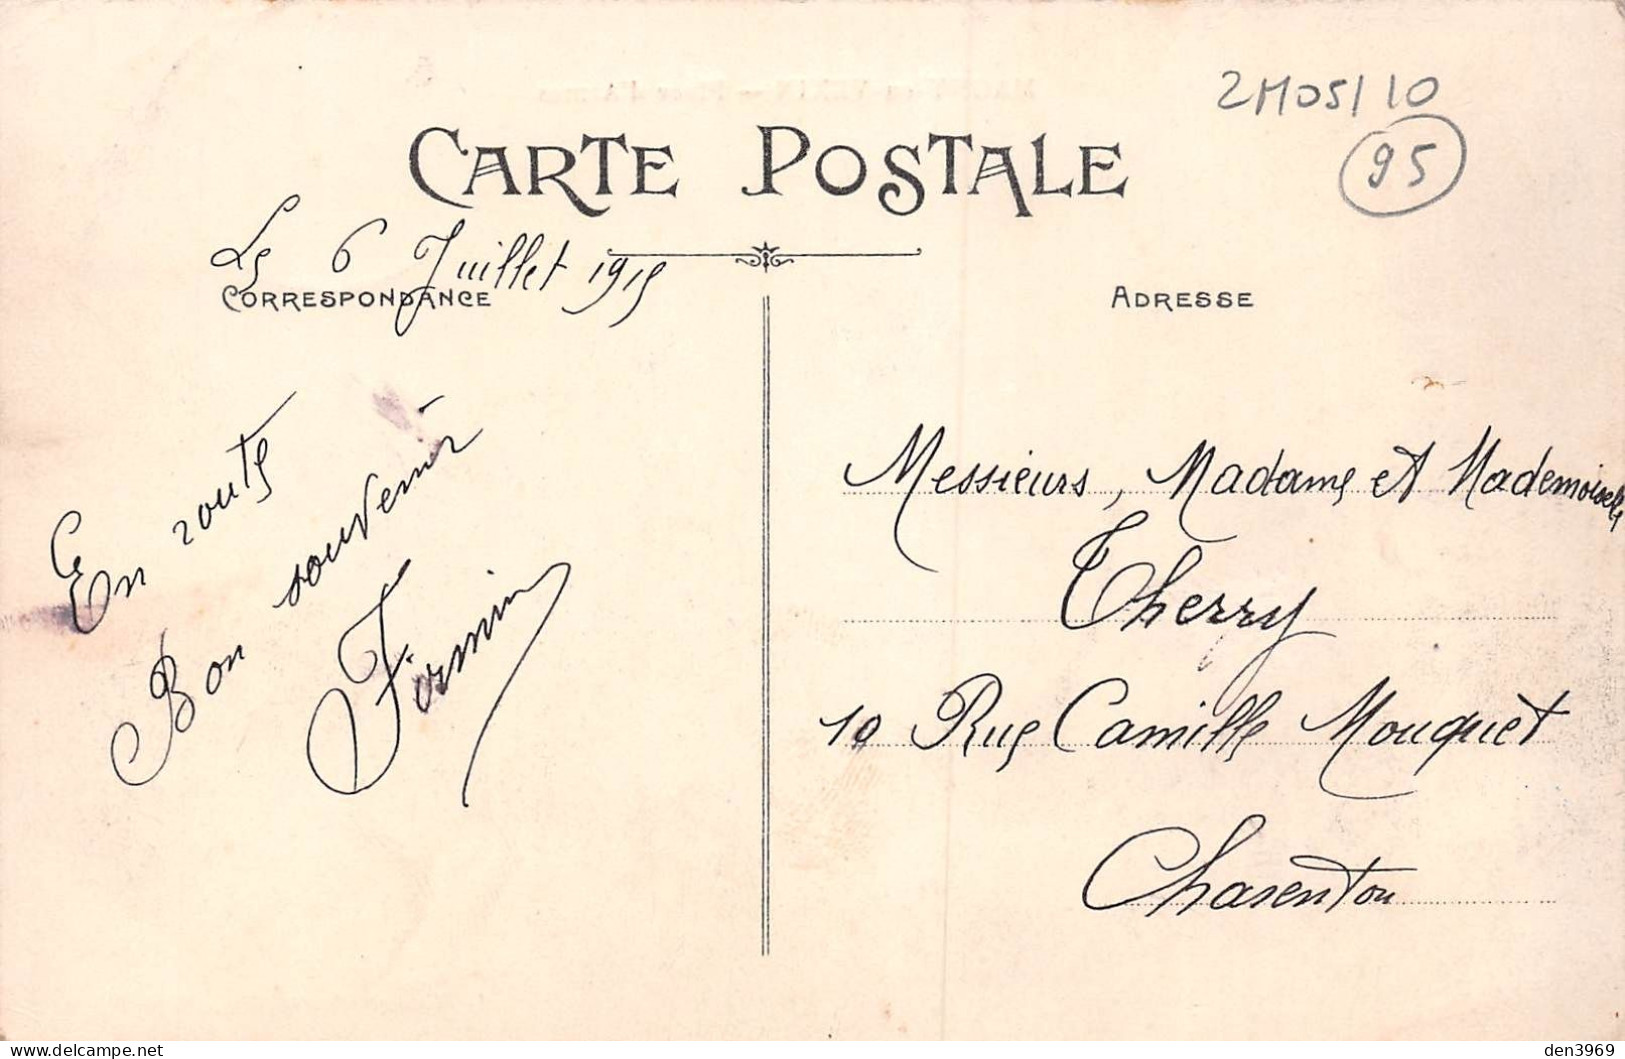 2M05/10
95
CARTE POSTALE
Le 6 Juillet 1915
CORRESPONDANCE
En route
Bon souvenir
Firmin
ADRESSE
Messieurs, Madame et Mademoiselle
Therry
10 Rue Camille Mouquet
Charenton
den3969